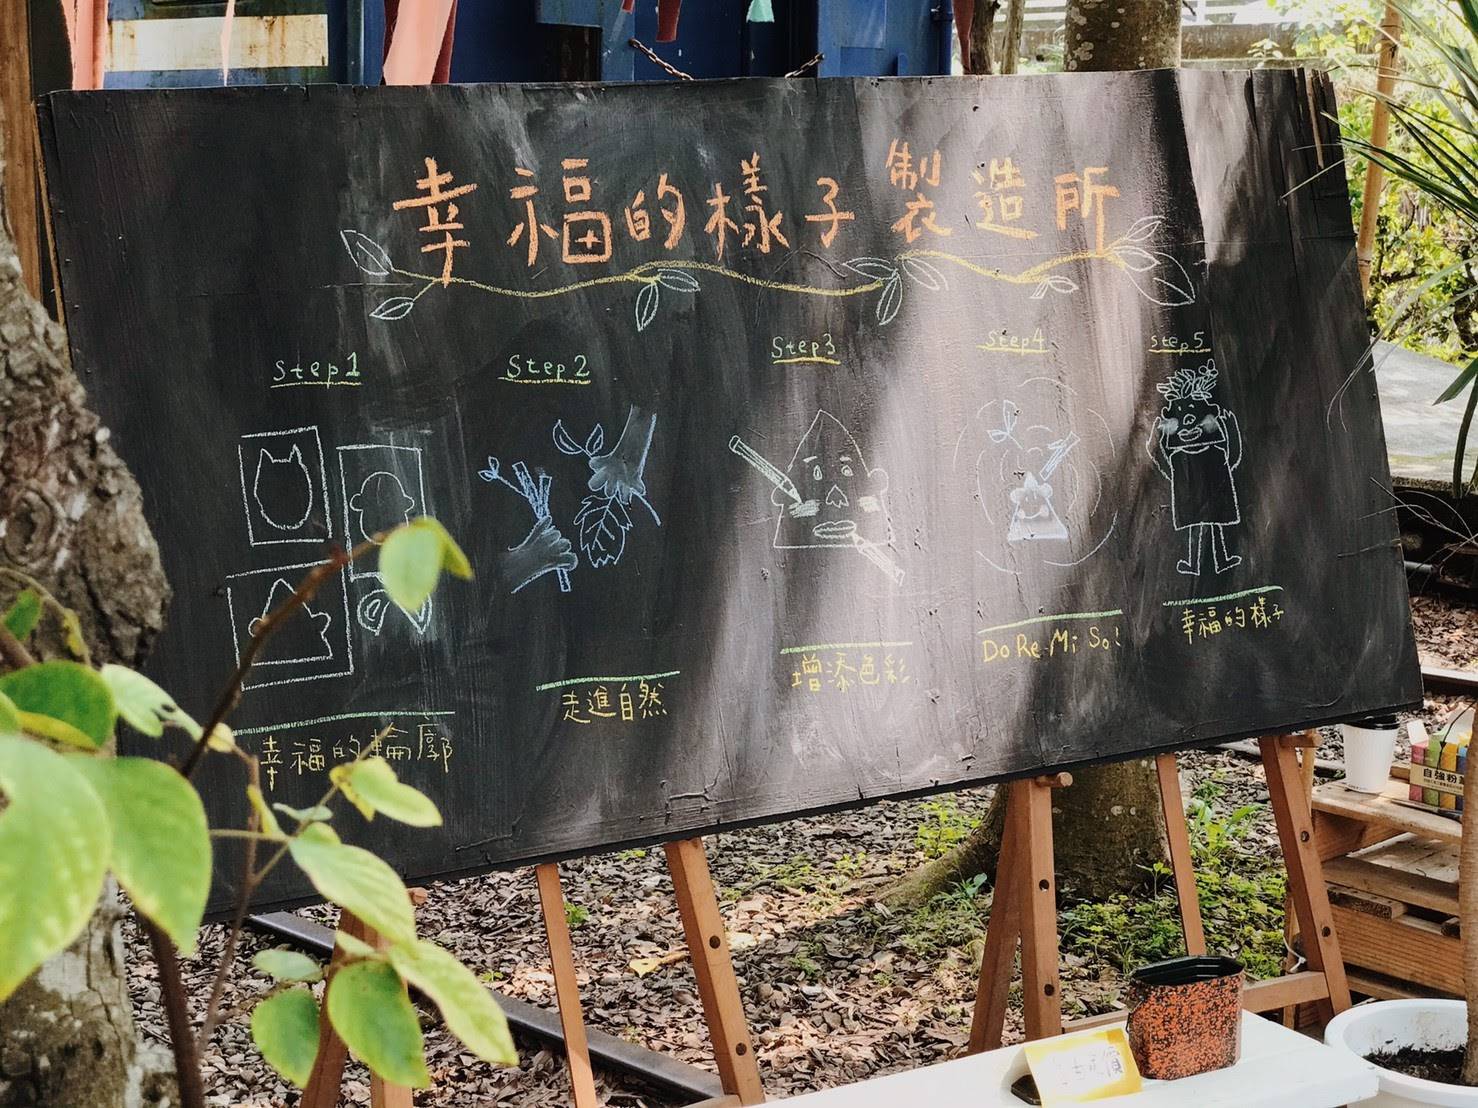 幸福的樣子製造所
Step1
Step2
Step3
Step4
Step5
幸福的輪廓
走進自然
增添色彩
Do Re Mi So!
幸福的樣子
自強粉